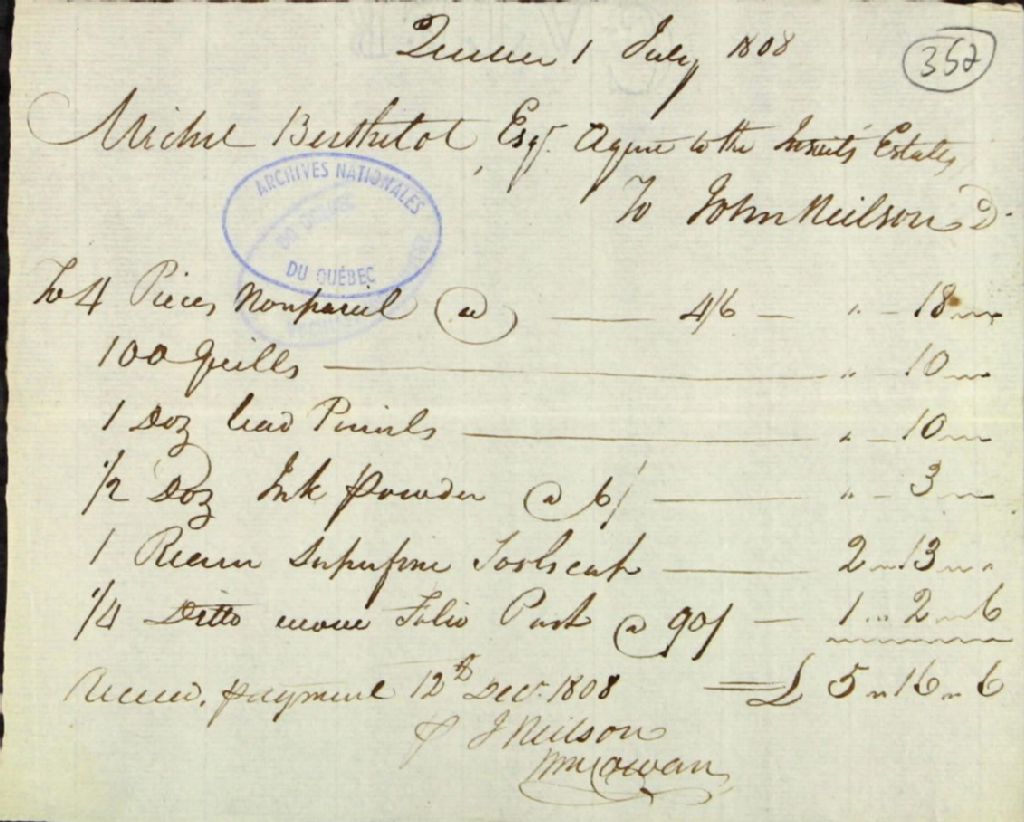 Quebec 1 July 1808
352
Michel Berthelot Esqr. Agent to the Jesuits Estates
To John Neilson Dr.
ARCHIVES NATIONALES
DU QUÉBEC
To 4 Pieces Nonpareil @ 4/6 " 18 "
100 Quills " 10 "
1 Doz lead Pencils " 10 "
1/2 Doz Ink Powder @ 6/ " 3 "
1 Ream Superfine Foolscap 2 " 13 "
1/4 Ditto wove Folio Post @ 90/ 1 " 2 " 6
Received payment 12th Decr. 1808 £ 5 " 16 " 6
p J Neilson
Wm Cowan